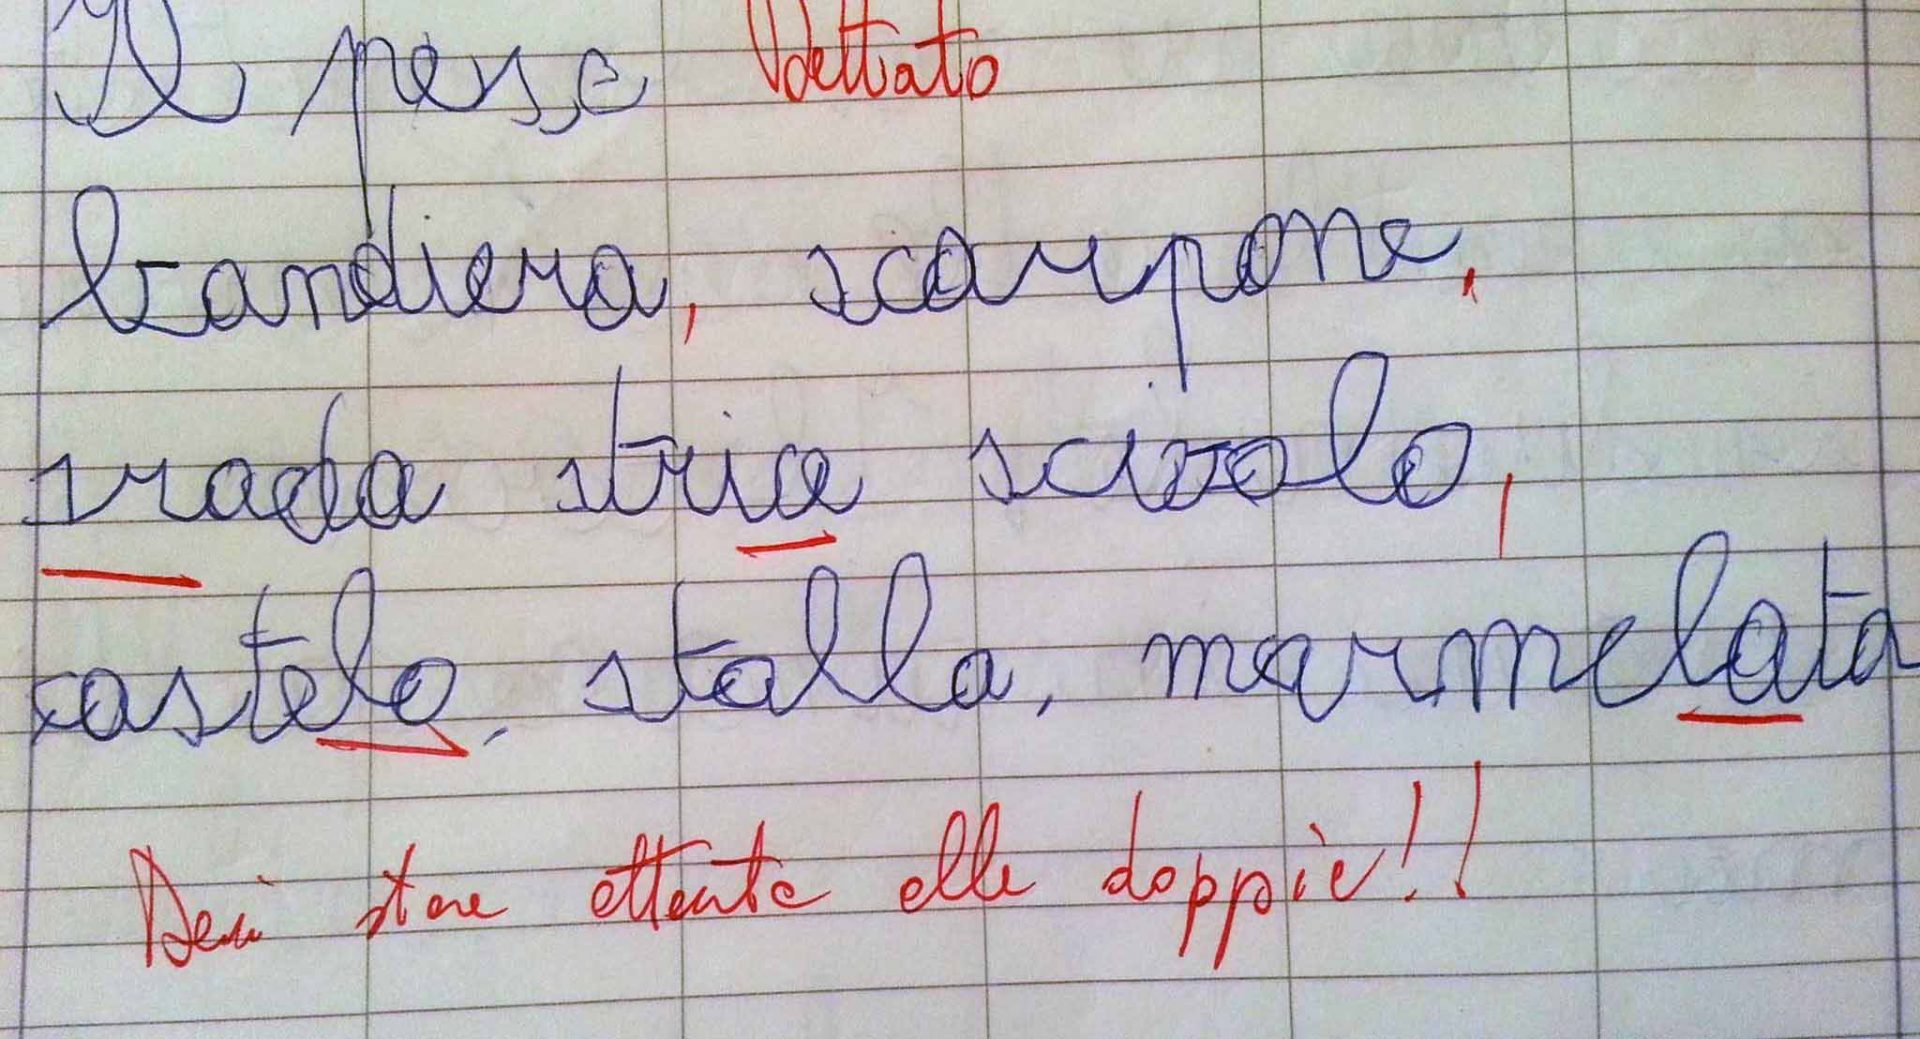 Il Dettato
bandiera, scarpone,
srada stria scivolo,
castelo, stalla, marmelata
Devi stare attenta alle doppie!!